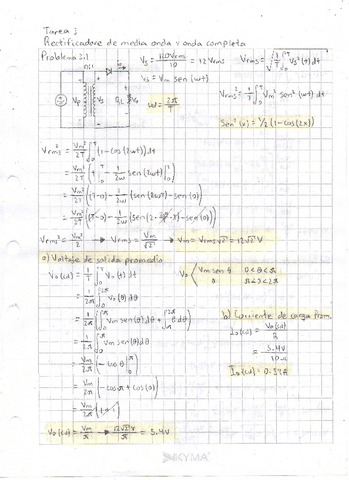 Tarea 1
Rectificadores de media onda y onda completa
Problema 3.1
n:1
Vp
Vs
Vo
Vs = 120Vrms/10 = 12 Vrms
Vs = Vm sen (ωt)
ω = 2π/T
Vrms = √(1/T ∫₀ᵀ Vs²(t) dt)
Vrms² = 1/T ∫₀ᵀ Vm² sen² (ωt) dt
Sen²(x) = 1/2 (1-cos(2x))
Vrms² = Vm²/2T ∫₀ᵀ (1-cos(2ωt)) dt
= Vm²/2T (t|₀ᵀ - 1/2ω sen(2ωt)|₀ᵀ)
= Vm²/2T ((T-0) - 1/2ω (sen(2ωT) - sen(0))
= Vm²/2T ((T-0) - 1/2ω (sen(2·2π/T·T) - sen(0))
Vrms² = Vm²/2 → Vrms = Vm/√2 → Vm = Vrms√2 = 12√2 V
a) Voltaje de salida promedio
Vo(cd) = 1/T ∫₀ᵀ Vo(t) dt
Vo { Vm sen θ 0<θ<π
0 π<θ<2π
= 1/2π ∫₀²π Vo(θ) dθ
= 1/2π [∫₀π Vm sen(θ) dθ + ∫π²π 0 dθ]
= 1/2π ∫₀π Vm sen(θ) dθ
= Vm/2π (-cosθ|₀π)
= Vm/2π (-cosπ + cos(0))
= Vm/2π (1+1)
Vo(cd) = Vm/π → 12√2 V/π = 5.4V
b) Corriente de carga prom.
Io(cd) = Vo(cd)/R
= 5.4V/10Ω
Io(cd) = 0.54A
KYMA